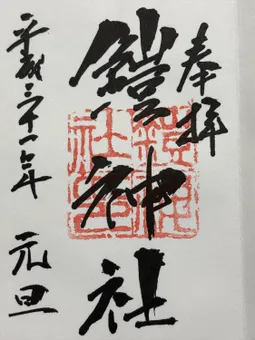 奉拝
鎧神社
平成三十一年 元旦